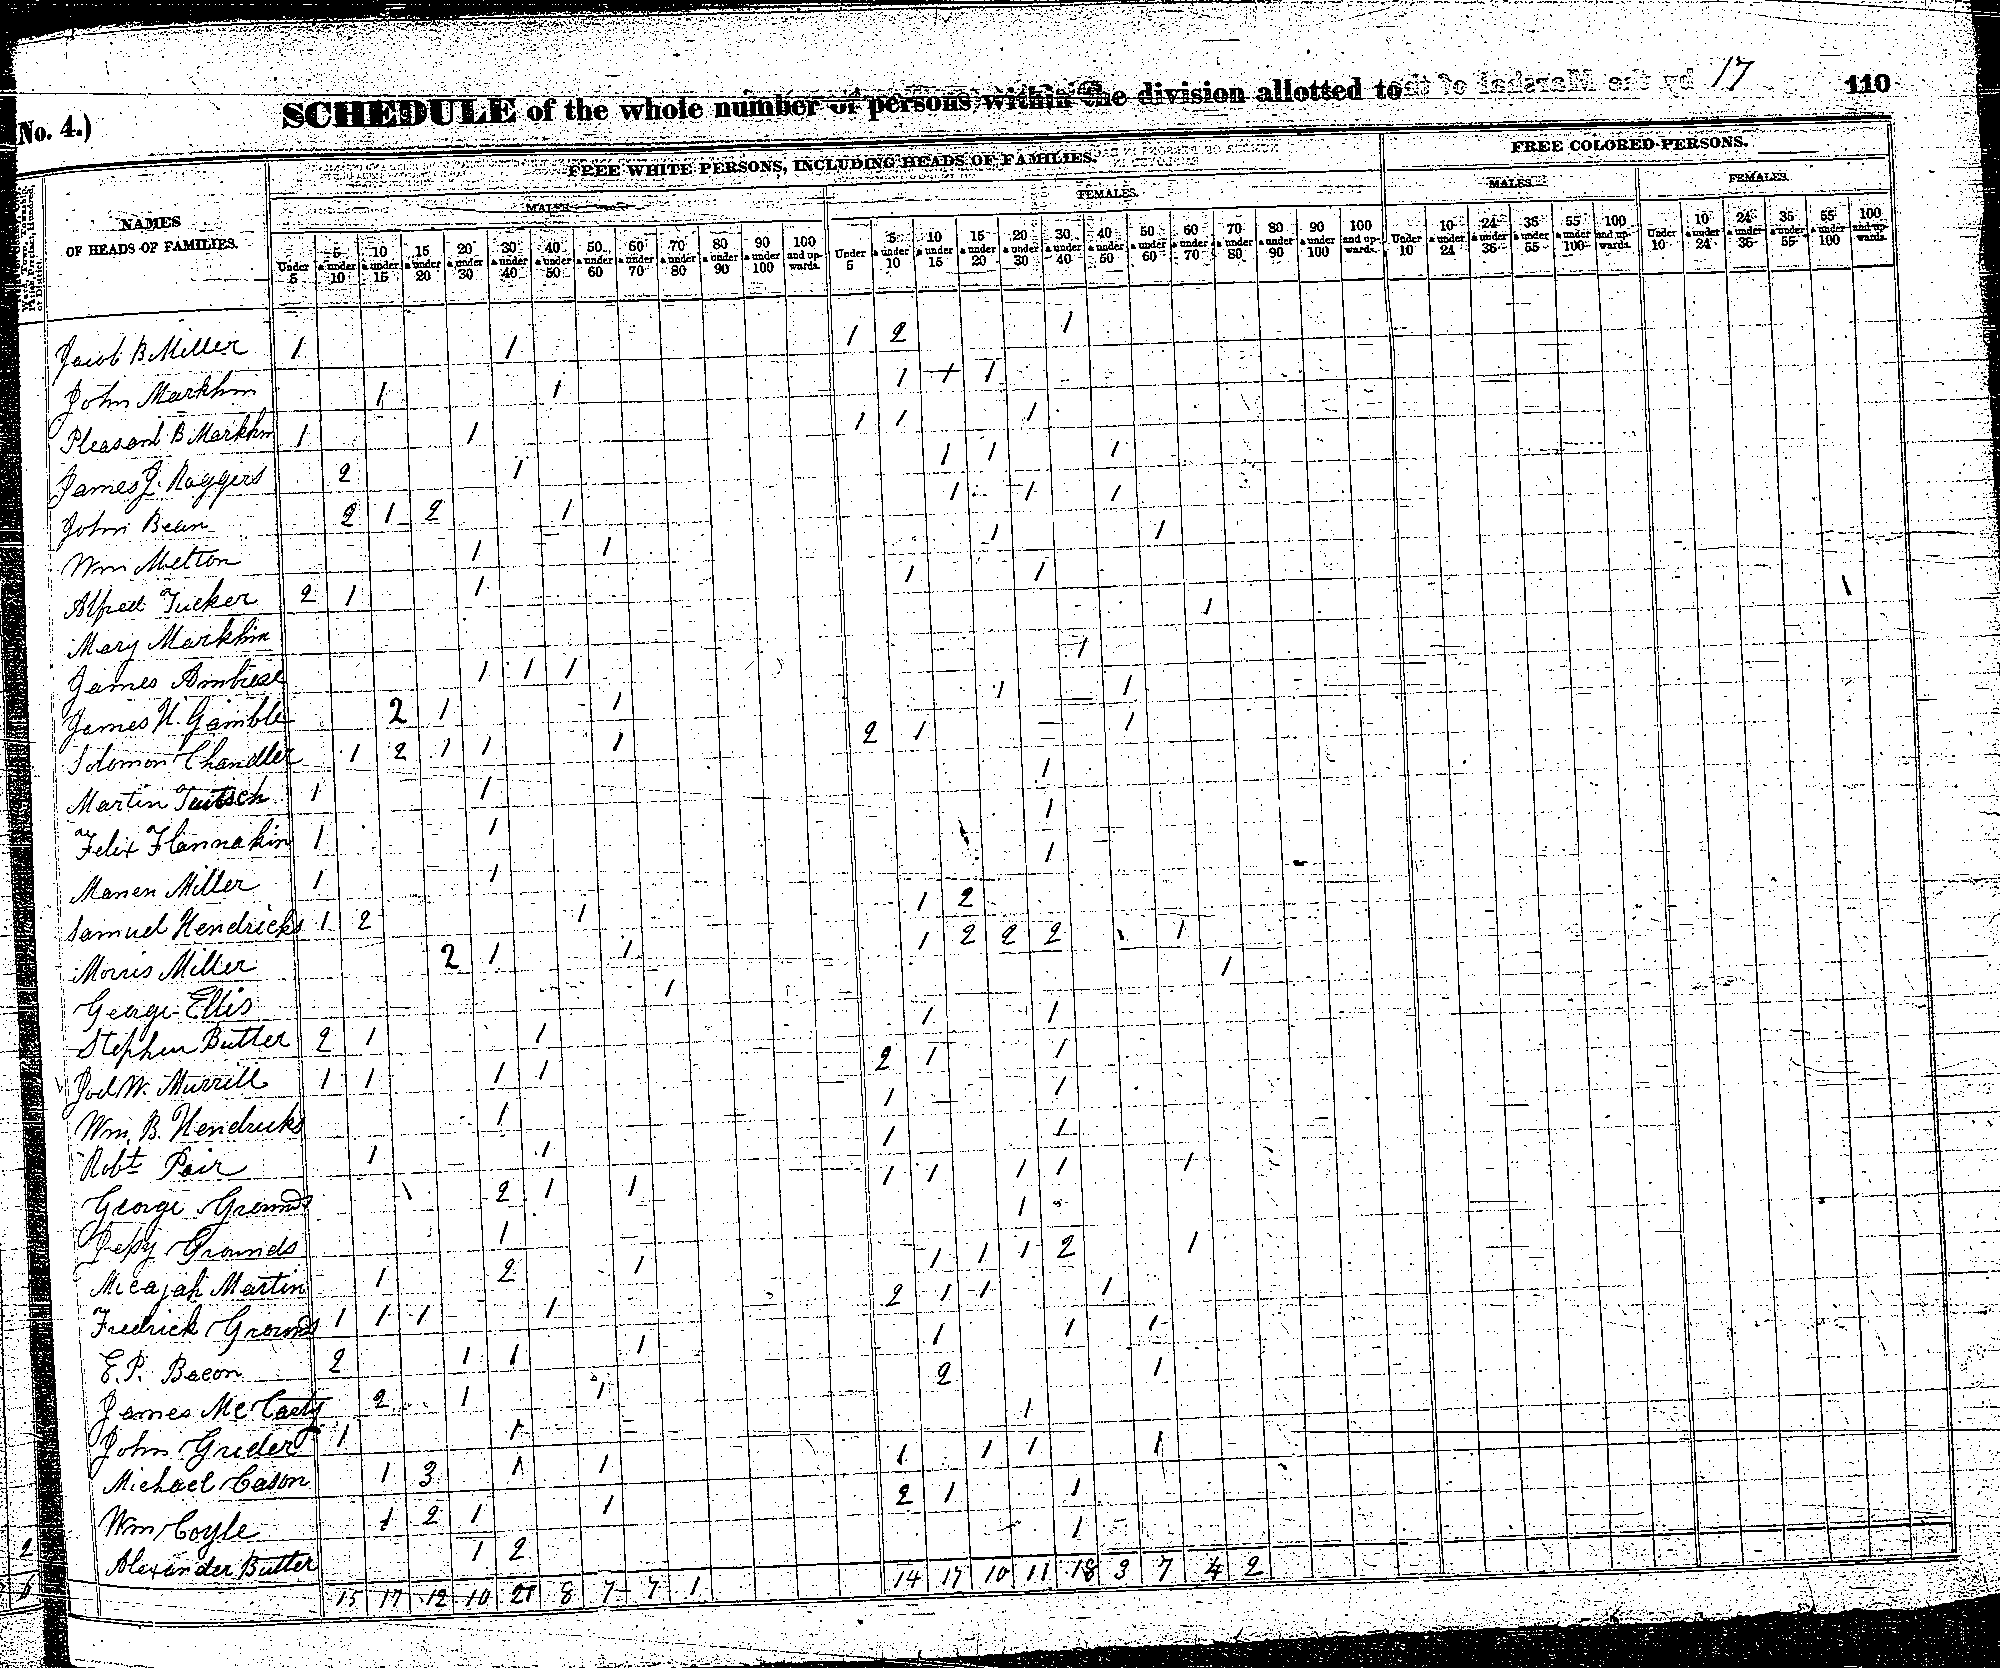 17
110
No. 4.)
SCHEDULE of the whole number of persons within the division allotted to by the Marshal of the
FREE WHITE PERSONS, INCLUDING HEADS OF FAMILIES. FREE COLORED PERSONS.
NAMES OF HEADS OF FAMILIES. MALES. FEMALES. MALES. FEMALES.
Under 5 5 & under 10 10 & under 15 15 & under 20 20 & under 30 30 & under 40 40 & under 50 50 & under 60 60 & under 70 70 & under 80 80 & under 90 90 & under 100 100 and upwards. Under 5 5 & under 10 10 & under 15 15 & under 20 20 & under 30 30 & under 40 40 & under 50 50 & under 60 60 & under 70 70 & under 80 80 & under 90 90 & under 100 100 and upwards. Under 10 10 & under 24 24 & under 36 36 & under 55 55 & under 100 100 and upwards. Under 10 10 & under 24 24 & under 36 36 & under 55 55 & under 100 100 and upwards.
Jacob B Miller 1 1 1 2 1
John Markhm 1 1 1 1 1
Pleasant B Markhm 1 1 1 1 1
James J. Roggers 2 1 1 1 1
John Bean 2 1 2 1 1 1 1
Wm Metron 1 1 1 1
Alfred Tucker 2 1 1 1 1
Mary Markhm 1
James Ambrese 1 1 1 1
James H. Gamble 2 1 1 1 1
Solomon Chandler 1 2 1 1 1 2 1 1
Martin Tuitsch 1 1 1
Felix Flannakin 1 1 1
Manen Miller 1 1 1
Samuel Hendricks 1 2 1 1 2
Morris Miller 2 1 1 1 2 2 2 1
George Ellis 1 1
Stephen Butler 2 1 1 1 1
Joel W. Murrill 1 1 1 1 2 1 1
Wm. B. Hendricks 1 1 1
Robt Pair 1 1 1 1
George Grounds 2 1 1 1 1 1 1 1
Jessy Grounds 1 1
Micajah Martin 1 2 1 1 1 1 2 1
Fredrick Grounds 1 1 1 1 2 1 1 1
E. P. Bacon 2 1 1 1 1 1 1
James McCarty 2 1 1 2 1
John Grider 1 1 1
Michael Cason 1 3 1 1 1 1 1 1
Wm Coyle 1 2 1 1 2 1 1
Alexander Butler 1 2 1
15 17 12 10 21 8 7 7 1 14 17 10 11 18 3 7 4 2